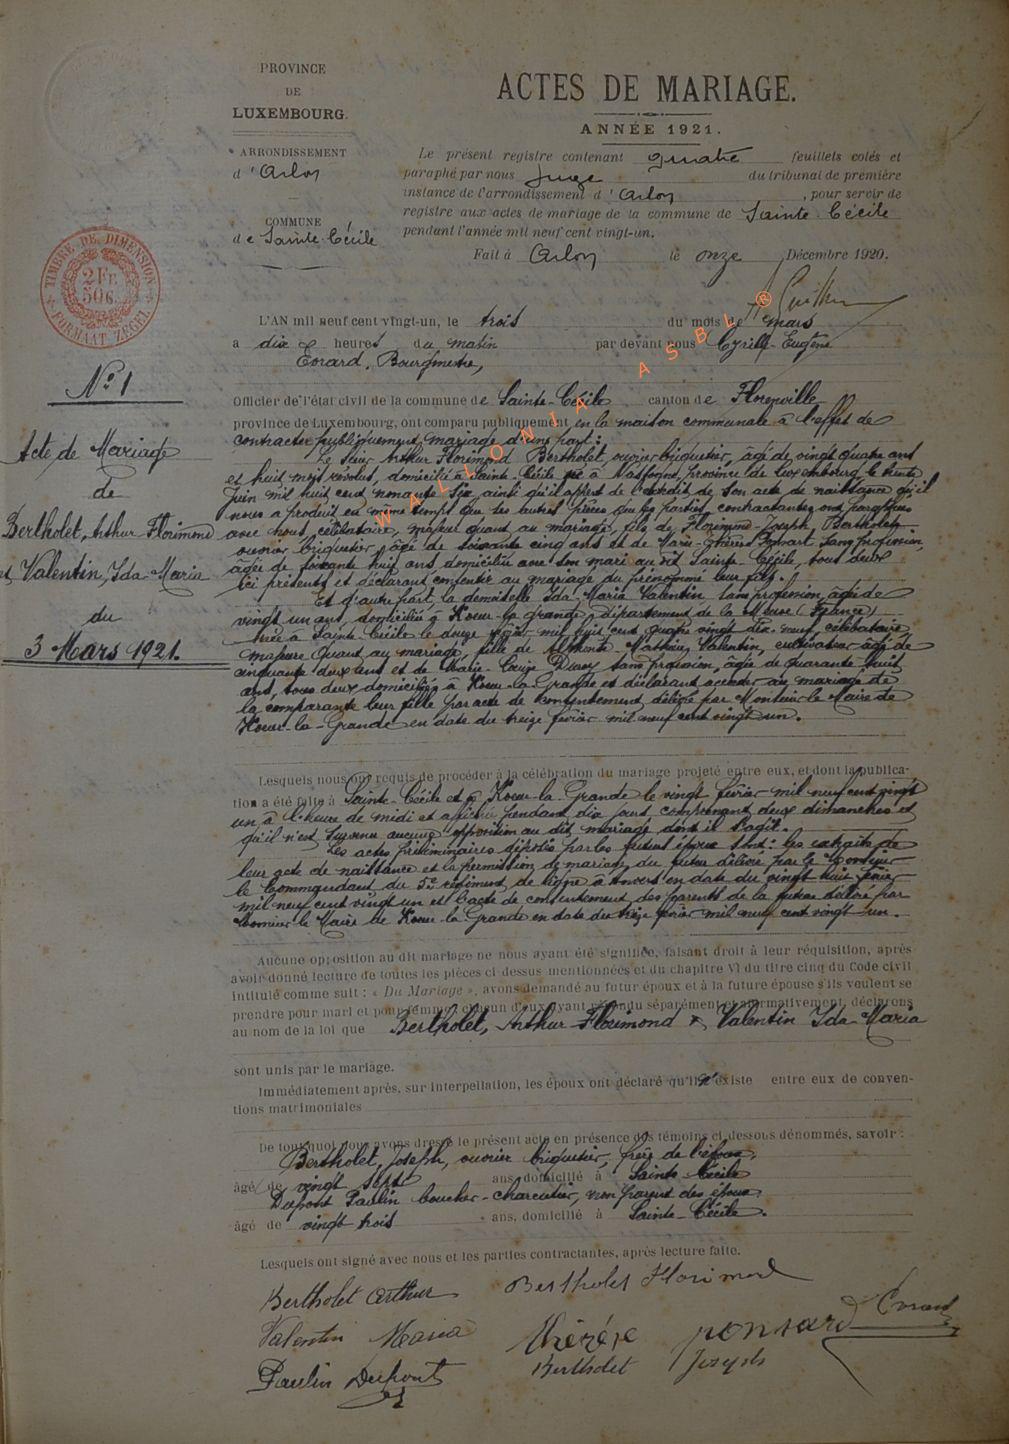 PROVINCE
DE
LUXEMBOURG.
ARRONDISSEMENT
d'Arlon
COMMUNE
de Sainte-Cécile
TIMBRE DE DIMENSION
2 FR.
50 C.
FORMAAT ZEGEL
ACTES DE MARIAGE.
ANNÉE 1921.
Le présent registre contenant quatre feuillets cotés et
paraphé par nous Juge du tribunal de première
instance de l'arrondissement d'Arlon, pour servir de
registre aux actes de mariage de la commune de Sainte-Cécile
pendant l'année mil neuf cent vingt-un.
Fait à Arlon le onze Décembre 1920.
N° 1
Acte de Mariage
de
Bertholet, Arthur Florimond
et Valentin, Ida-Maria
du
3 Mars 1921.
L'AN mil neuf cent vingt-un, le trois du mois de mars
à dix heures du matin par devant nous Cyrille-Eugène
Evrard, Bourgmestre,
Officier de l'état civil de la commune de Sainte-Cécile canton de Florenville
province de Luxembourg, ont comparu publiquement en la maison communale à l'effet de
contracter publiquement mariage d'une part :
Le sieur Arthur Florimond Bertholet, ouvrier briquetier, âgé de vingt quatre ans
et huit mois révolus, domicilié à Sainte-Cécile né à province de Luxembourg le trente
Juin mil huit cent nonante six, ainsi qu'il appert de l'extrait de son acte de naissance qu'il
nous a produit en même temps que les autres pièces que les parties contractantes ont paraphées
avec nous, célibataire, majeur quant au mariage, fils de Florimond-Joseph Bertholet
ouvrier briquetier, âgé de soixante cinq ans et de Marie-Thérèse Ponsart sans profession,
âgée de soixante huit ans domiciliée avec son mari au dit Sainte-Cécile, tous deux
ici présents et déclarant consentir au mariage du prénommé leur fils.
Et d'autre part la demoiselle Ida-Maria Valentin sans profession, âgée de
vingt un ans, domiciliée à Koeur-la-grande, département de la Meuse (France)
née à Sainte-Cécile le douze mil huit cent quatre vingt dix-neuf, célibataire,
majeure quant au mariage, fille de Mathieu Valentin, cultivateur âgé de
cinquante deux ans et de Marie-Louise sans profession, âgée de quarante huit
ans, tous deux domiciliés à Koeur-la-Grande et déclarant au mariage de
la comparante leur fille par acte de consentement délivré par Monsieur le Maire de
Koeur-la-Grande en date du treize février mil neuf cent vingt un.
Lesquels nous ont requis de procéder à la célébration du mariage projeté entre eux, et dont la publica-
tion a été faite à Sainte-Cécile et à Koeur-la-Grande le vingt février mil neuf cent vingt
un à l'heure de midi et affichée pendant dix jours comprenant deux dimanches et
qu'il n'est survenu aucune opposition au dit mariage dont il s'agit.
Les actes préliminaires déposés par les futurs époux sont : les extraits de
leur acte de naissance et la permission de mariage du futur délivré par le Monsieur
le Commandant du 5e régiment de ligne à Anvers en date du vingt huit février
mil neuf cent vingt un et l'acte de consentement des parents de la future délivré par
Monsieur le Maire de Koeur-la-Grande en date du treize février mil neuf cent vingt-un.
Aucune opposition au dit mariage ne nous ayant été signifiée, faisant droit à leur réquisition, après
avoir donné lecture de toutes les pièces ci-dessus mentionnées et du chapitre VI du titre cinq du Code civil
intitulé comme suit : « Du Mariage », avons demandé au futur époux et à la future épouse s'ils veulent se
prendre pour mari et pour femme ; chacun d'eux ayant répondu séparément et affirmativement, déclarons
au nom de la loi que Bertholet, Arthur-Florimond & Valentin Ida-Maria
sont unis par le mariage.
Immédiatement après, sur interpellation, les époux ont déclaré qu'il n'existe entre eux de conven-
tions matrimoniales
De tout quoi nous avons dressé le présent acte en présence des témoins ci-dessous dénommés, savoir :
Bertholet, Joseph, ouvrier briquetier, frère de l'époux,
âgé de vingt sept ans, domicilié à Sainte-Cécile
Dupont Paulin boucher-charcutier, non parent des époux,
âgé de vingt trois ans, domicilié à Sainte-Cécile.
Lesquels ont signé avec nous et les parties contractantes, après lecture faite.
Bertholet Arthur Bertholet Florimond
Valentin Maria Thérèse ponsard Evrard
Paulin Dupont Bertholet Joseph
WALLONIA ASBL ®